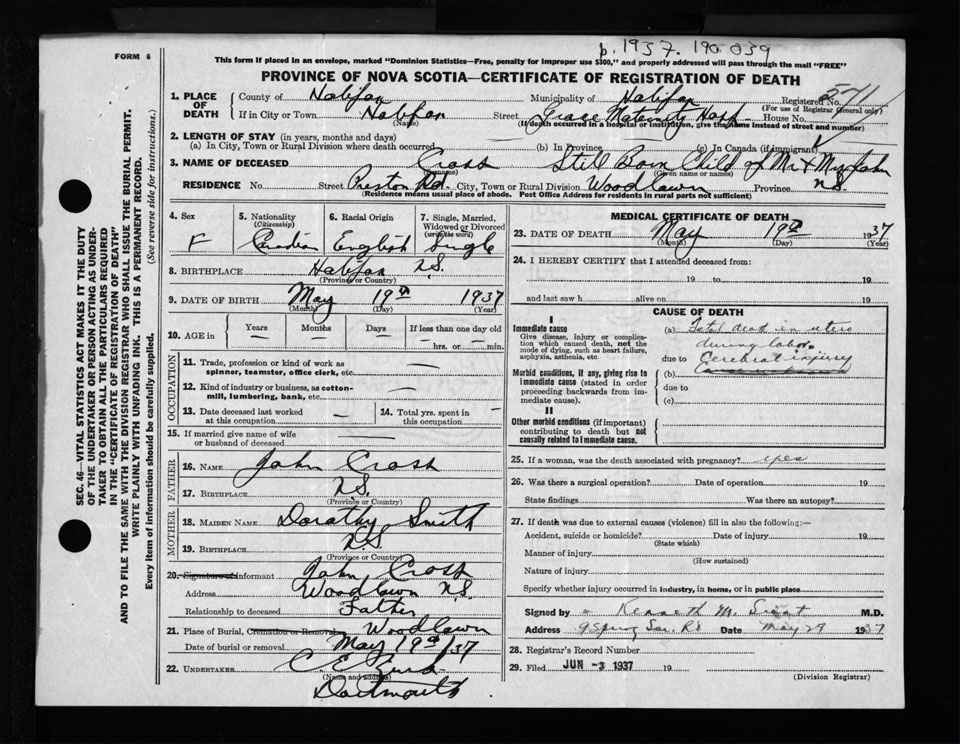 p. 1937. 190 039
FORM 6
This form if placed in an envelope, marked "Dominion Statistics—Free, penalty for improper use $300," and properly addressed will pass through the mail "FREE"
PROVINCE OF NOVA SCOTIA—CERTIFICATE OF REGISTRATION OF DEATH
1. PLACE OF DEATH County of Halifax Municipality of Halifax Registered No. 571
(For use of Registrar General only)
If in City or Town Halifax Street Grace Maternity Hosp
(Name) (If death occurred in a hospital or institution, give the name instead of street and number)
2. LENGTH OF STAY (in years, months and days)
(a) In City, Town or Rural Division where death occurred (b) In Province (c) In Canada (if immigrant)
3. NAME OF DECEASED Cross Still Born Child of Mr & Mrs John
(Surname) (Given name or names)
RESIDENCE No. Street Preston Rd. City, Town or Rural Division Woodlawn Province N.S.
(Residence means usual place of abode. Post Office Address for residents in rural parts not sufficient)
4. Sex F
5. Nationality (Citizenship) Canadian
6. Racial Origin English
7. Single, Married, Widowed or Divorced (write the word) Single
8. BIRTHPLACE Halifax N.S.
(Province or Country)
9. DATE OF BIRTH May 19th 1937
(Month) (Day) (Year)
10. AGE in Years — Months — Days — If less than one day old — hrs. or — min.
OCCUPATION
11. Trade, profession or kind of work as spinner, teamster, office clerk, etc. —
12. Kind of industry or business, as cotton-mill, lumbering, bank, etc. —
13. Date deceased last worked at this occupation —
14. Total yrs. spent in this occupation —
15. If married give name of wife or husband of deceased —
FATHER
16. NAME John Cross
17. BIRTHPLACE N.S.
(Province or Country)
MOTHER
18. MAIDEN NAME Dorothy Smith
19. BIRTHPLACE N.S
(Province or Country)
20. Signature of informant John Cross
Address Woodlawn N.S.
Relationship to deceased Father
21. Place of Burial, Cremation or Removal Woodlawn
Date of burial or removal May 19th/37
22. UNDERTAKER C. E.
(Name and address)
Dartmouth
MEDICAL CERTIFICATE OF DEATH
23. DATE OF DEATH May 19th 1937
(Month) (Day) (Year)
24. I HEREBY CERTIFY that I attended deceased from:
19 to 19
and last saw h alive on 19
CAUSE OF DEATH
I
Immediate cause
Give disease, injury or complication which caused death, not the mode of dying, such as heart failure, asphyxia, asthenia, etc.
(a) Fetal death in utero
during labor.
due to Cerebral injury
Morbid conditions, if any, giving rise to immediate cause (stated in order proceeding backwards from immediate cause).
(b)
due to
(c)
II
Other morbid conditions (if important) contributing to death but not causally related to Immediate cause.
25. If a woman, was the death associated with pregnancy? yes
26. Was there a surgical operation? Date of operation 19
State findings Was there an autopsy?
27. If death was due to external causes (violence) fill in also the following:—
Accident, suicide or homicide? Date of injury 19
(State which)
Manner of injury
(How sustained)
Nature of injury
Specify whether injury occurred in industry, in home, or in public place
Signed by Kenneth M. M.D.
Address 9 Spring Gar. Rd Date May 29 1937
28. Registrar's Record Number
29. Filed JUN -3 1937
(Division Registrar)
SEC. 46—VITAL STATISTICS ACT MAKES IT THE DUTY
OF THE UNDERTAKER OR PERSON ACTING AS UNDER-
TAKER TO OBTAIN ALL THE PARTICULARS REQUIRED
IN THE "CERTIFICATE OF REGISTRATION OF DEATH"
AND TO FILE THE SAME WITH THE DIVISION REGISTRAR WHO SHALL ISSUE THE BURIAL PERMIT.
WRITE PLAINLY WITH UNFADING INK. THIS IS A PERMANENT RECORD.
Every item of information should be carefully supplied. (See reverse side for instructions.)